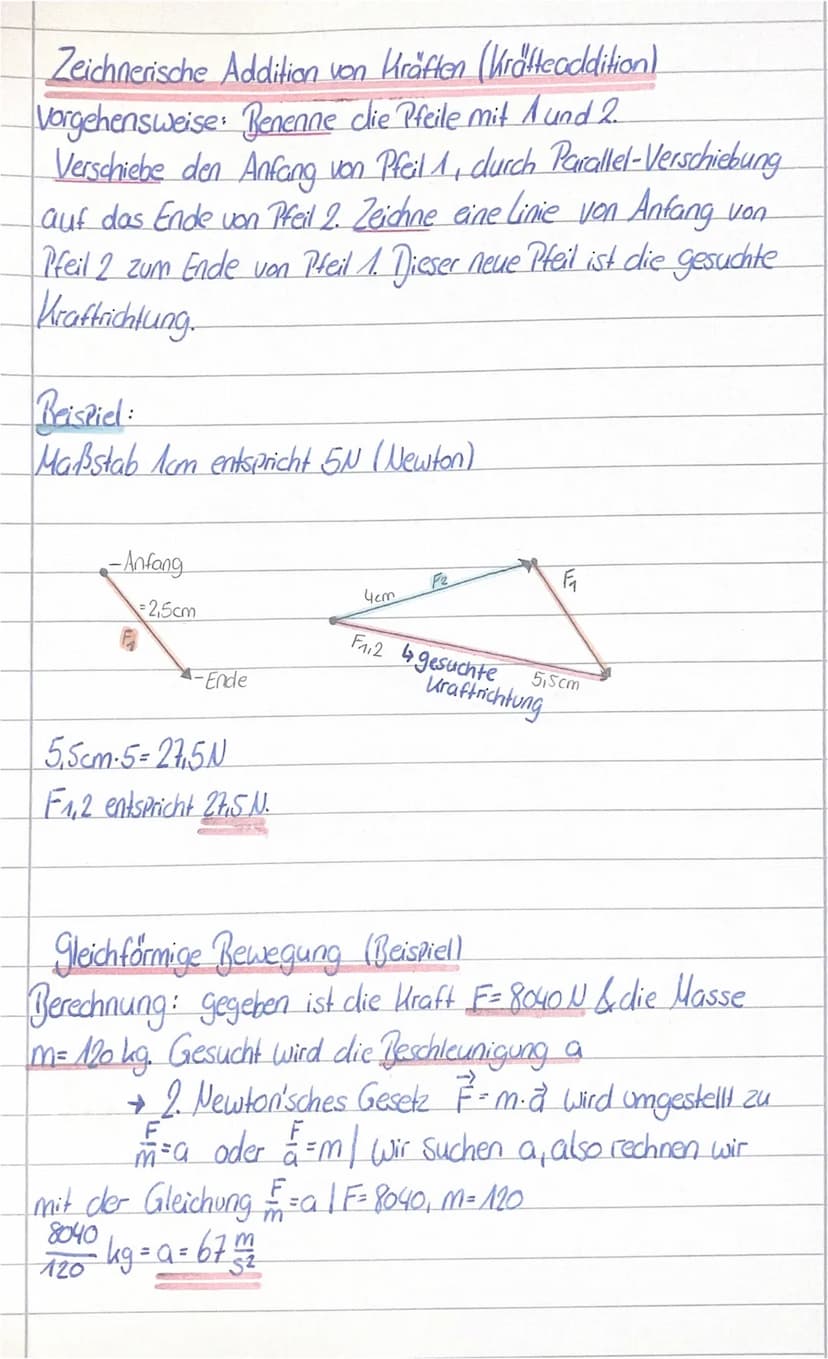 Zeichnerische Addition von Kräften (Kräfteaddition)
Vorgehensweise: Benenne die Pfeile mit 1 und 2.
Verschiebe den Anfang von Pfeil 1, durch Parallel-Verschiebung
auf das Ende von Pfeil 2. Zeichne eine Linie von Anfang von
Pfeil 2 zum Ende von Pfeil 1. Dieser neue Pfeil ist die gesuchte
Kraftrichtung.
Beispiel:
Maßstab 1cm entspricht 5N (Newton)
-Anfang
=2,5cm
F1
-Ende
4cm
F2
F1
F1,2
↳ gesuchte
Kraftrichtung
5,5cm
5,5cm·5=27,5N
F1,2 entspricht 27,5N.
Gleichförmige Bewegung (Beispiel)
Berechnung: gegeben ist die Kraft F=8040N & die Masse
m=120kg. Gesucht wird die Beschleunigung a
→ 2. Newton'sches Gesetz F⃗=m·a⃗ wird umgestellt zu
F/m=a oder F/a=m | Wir suchen a, also rechnen wir
mit der Gleichung F/m=a | F=8040, m=120
8040/120 kg=a=67 m/s²